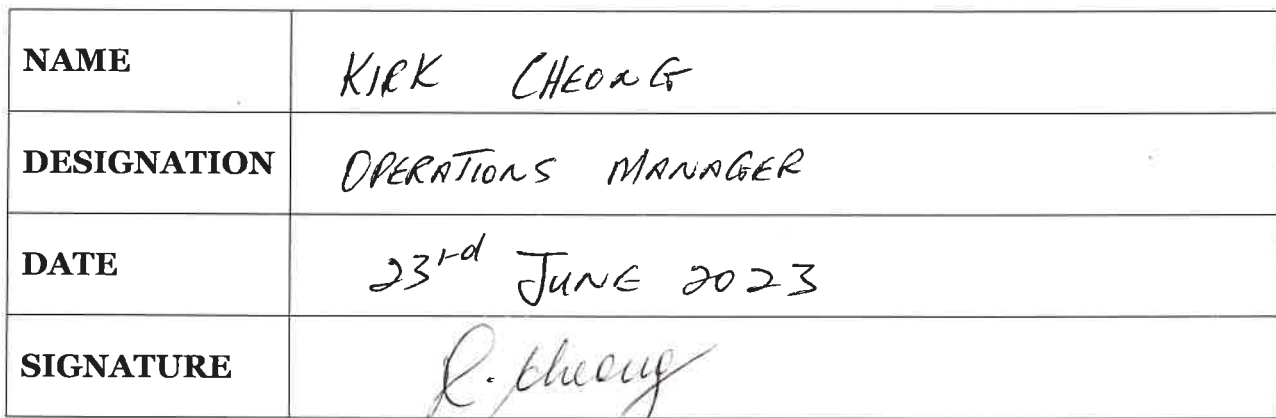 NAME KIRK CHEONG
DESIGNATION OPERATIONS MANAGER
DATE 23rd JUNE 2023
SIGNATURE